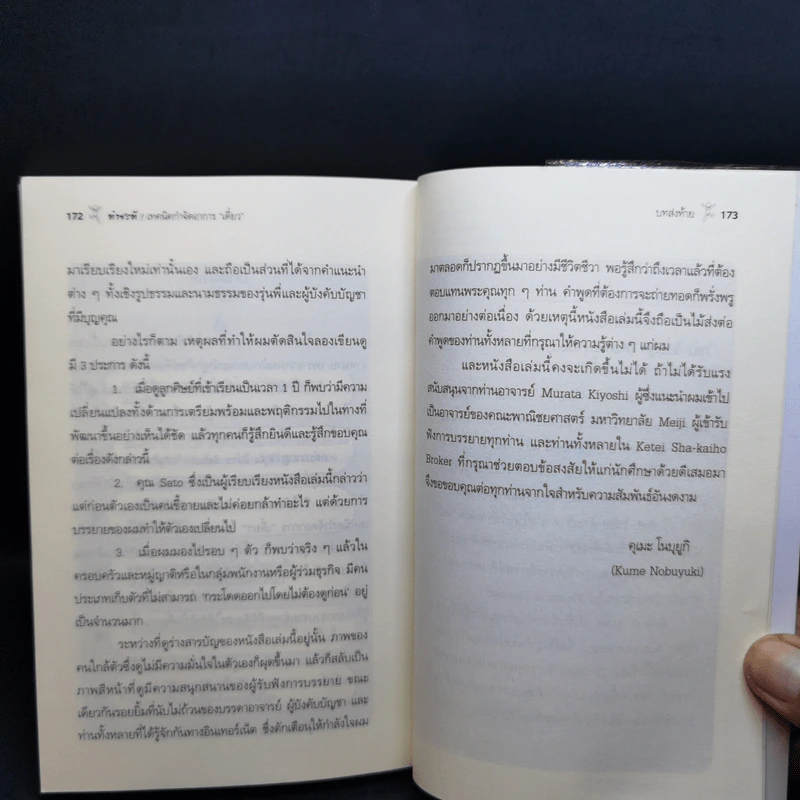 172 ทำซะที ! เทคนิคกำจัดอาการ "เดี๋ยว"
มาเรียบเรียงใหม่เท่านั้นเอง และถือเป็นส่วนที่ได้จากคำแนะนำ
ต่าง ๆ ทั้งเชิงรูปธรรมและนามธรรมของรุ่นพี่และผู้บังคับบัญชา
ที่มีบุญคุณ
อย่างไรก็ตาม เหตุผลที่ทำให้ผมตัดสินใจลองเขียนดู
มี 3 ประการ ดังนี้
1. เมื่อดูลูกศิษย์ที่เข้าเรียนเป็นเวลา 1 ปี ก็พบว่ามีความ
เปลี่ยนแปลงทั้งด้านการเตรียมพร้อมและพฤติกรรมไปในทางที่
พัฒนาขึ้นอย่างเห็นได้ชัด แล้วทุกคนก็รู้สึกยินดีและรู้สึกขอบคุณ
ต่อเรื่องดังกล่าวนี้
2. คุณ Sato ซึ่งเป็นผู้เรียบเรียงหนังสือเล่มนี้กล่าวว่า
แต่ก่อนตัวเองเป็นคนขี้อายและไม่ค่อยกล้าทำอะไร แต่ด้วยการ
บรรยายของผมทำให้ตัวเองเปลี่ยนไป
3. เมื่อผมมองไปรอบ ๆ ตัว ก็พบว่าจริง ๆ แล้วใน
ครอบครัวและหมู่ญาติหรือในกลุ่มพนักงานหรือผู้ร่วมธุรกิจ มีคน
ประเภทเก็บตัวที่ไม่สามารถ 'กระโดดออกไปโดยไม่ต้องดูก่อน' อยู่
เป็นจำนวนมาก
ระหว่างที่ดูร่างสารบัญของหนังสือเล่มนี้อยู่นั้น ภาพของ
คนใกล้ตัวซึ่งดูไม่มีความมั่นใจในตัวเองก็ผุดขึ้นมา แล้วก็สลับเป็น
ภาพสีหน้าที่ดูมีความสนุกสนานของผู้รับฟังการบรรยาย ขณะ
เดียวกันรอยยิ้มที่นับไม่ถ้วนของบรรดาอาจารย์ ผู้บังคับบัญชา และ
ท่านทั้งหลายที่ได้รู้จักกันทางอินเทอร์เน็ต ซึ่งตักเตือนให้กำลังใจผม
บทส่งท้าย 173
มาตลอดก็ปรากฏขึ้นมาอย่างมีชีวิตชีวา พอรู้สึกว่าถึงเวลาแล้วที่ต้อง
ตอบแทนพระคุณทุก ๆ ท่าน คำพูดที่ต้องการจะถ่ายทอดก็พรั่งพรู
ออกมาอย่างต่อเนื่อง ด้วยเหตุนี้หนังสือเล่มนี้จึงถือเป็นไม้ส่งต่อ
คำพูดของท่านทั้งหลายที่กรุณาให้ความรู้ต่าง ๆ แก่ผม
และหนังสือเล่มนี้คงจะเกิดขึ้นไม่ได้ ถ้าไม่ได้รับแรง
สนับสนุนจากท่านอาจารย์ Murata Kiyoshi ผู้ซึ่งแนะนำผมเข้าไป
เป็นอาจารย์ของคณะพาณิชยศาสตร์ มหาวิทยาลัย Meiji ผู้เข้ารับ
ฟังการบรรยายทุกท่าน และท่านทั้งหลายใน Ketei Sha-kaiho
Broker ที่กรุณาช่วยตอบข้อสงสัยให้แก่นักศึกษาด้วยดีเสมอมา
จึงขอขอบคุณต่อทุกท่านจากใจสำหรับความสัมพันธ์อันงดงาม
คุเมะ โนบุยูกิ
(Kume Nobuyuki)